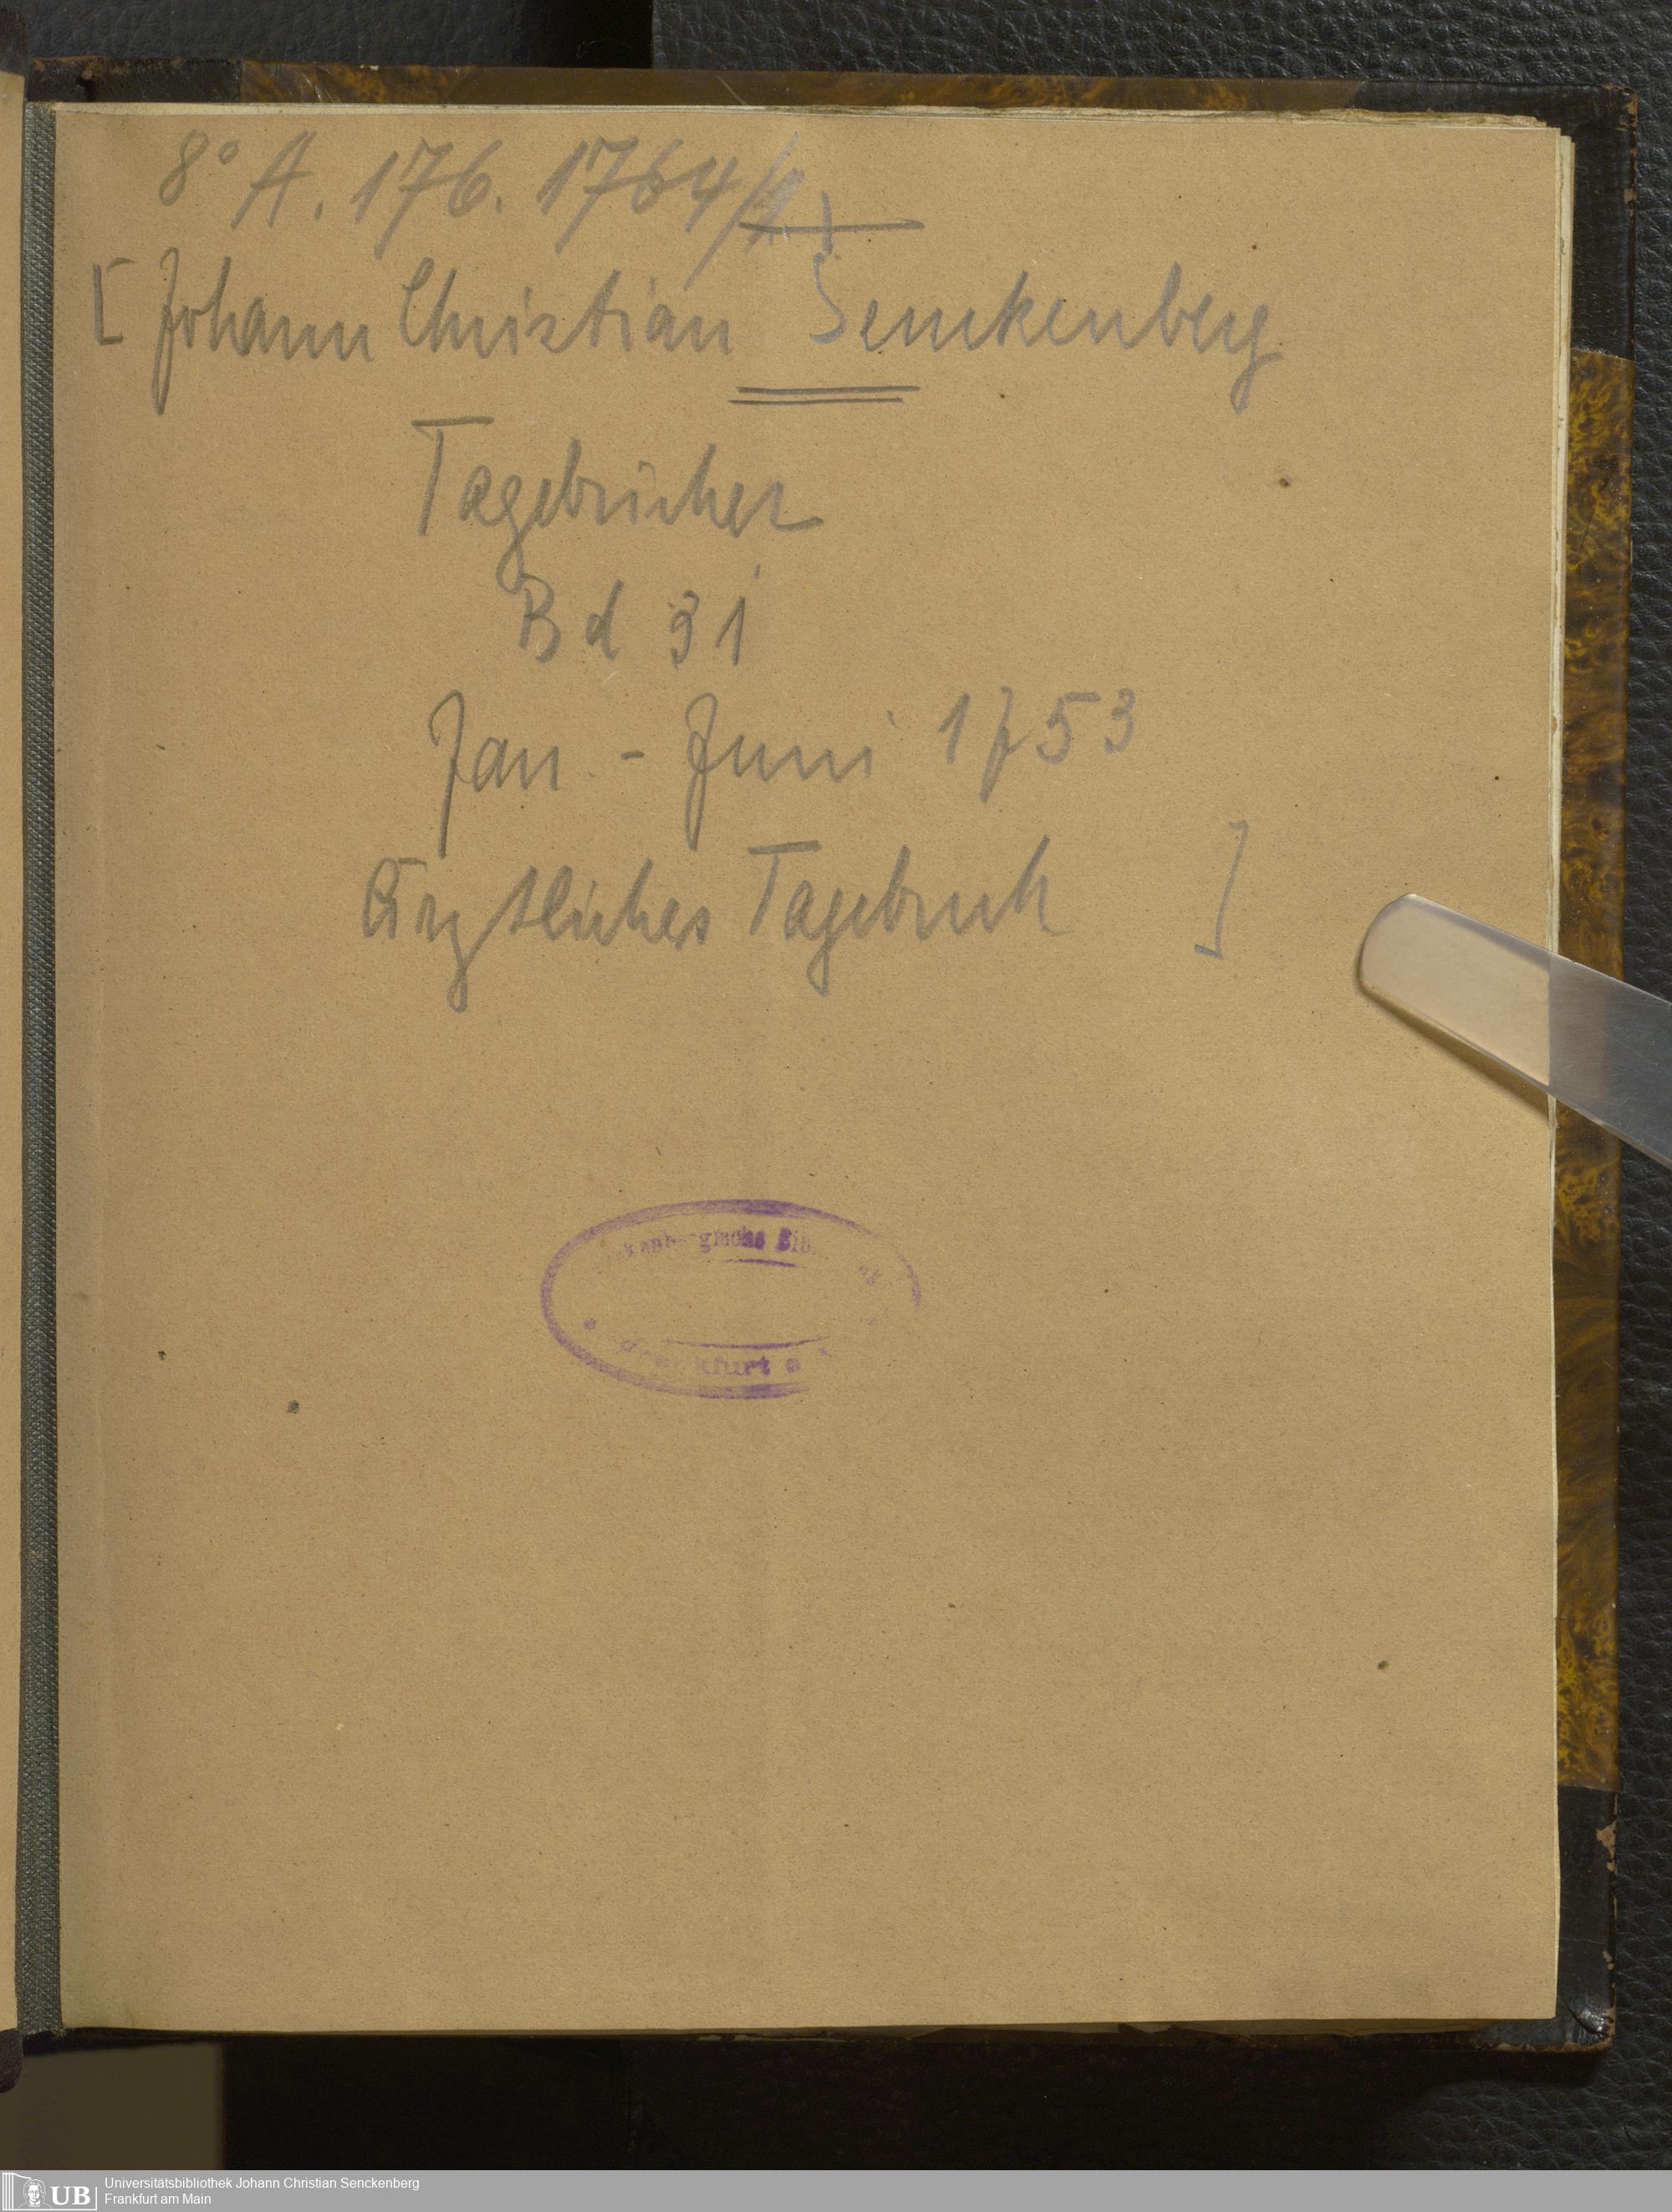 8° A. 176. 1764/
[ Johann Christian Senckenberg
Tagebücher
Bd 31
Jan. - Juni 1753
Ärztliches Tagebuch ]
Frankfurt a
UB
Universitätsbibliothek Johann Christian Senckenberg
Frankfurt am Main